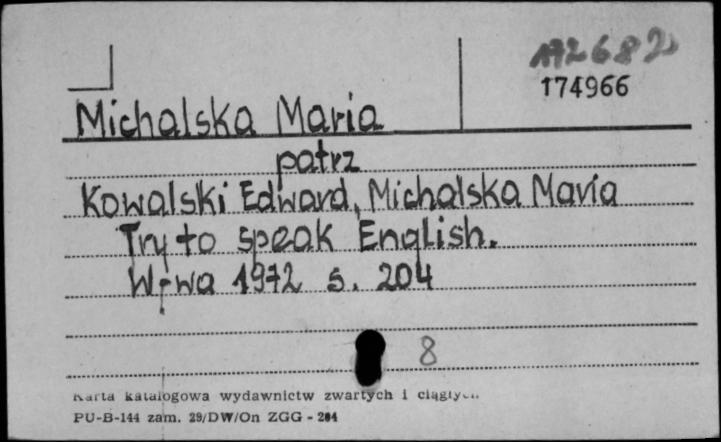 172682
174966
Michalska Maria
patrz
Kowalski Edward, Michalska Maria
Try to speak English.
W-wa 1972 s. 204
8
Karta katalogowa wydawnictw zwartych i ciągłych
PU-B-144 zam. 29/DW/On ZGG - 204